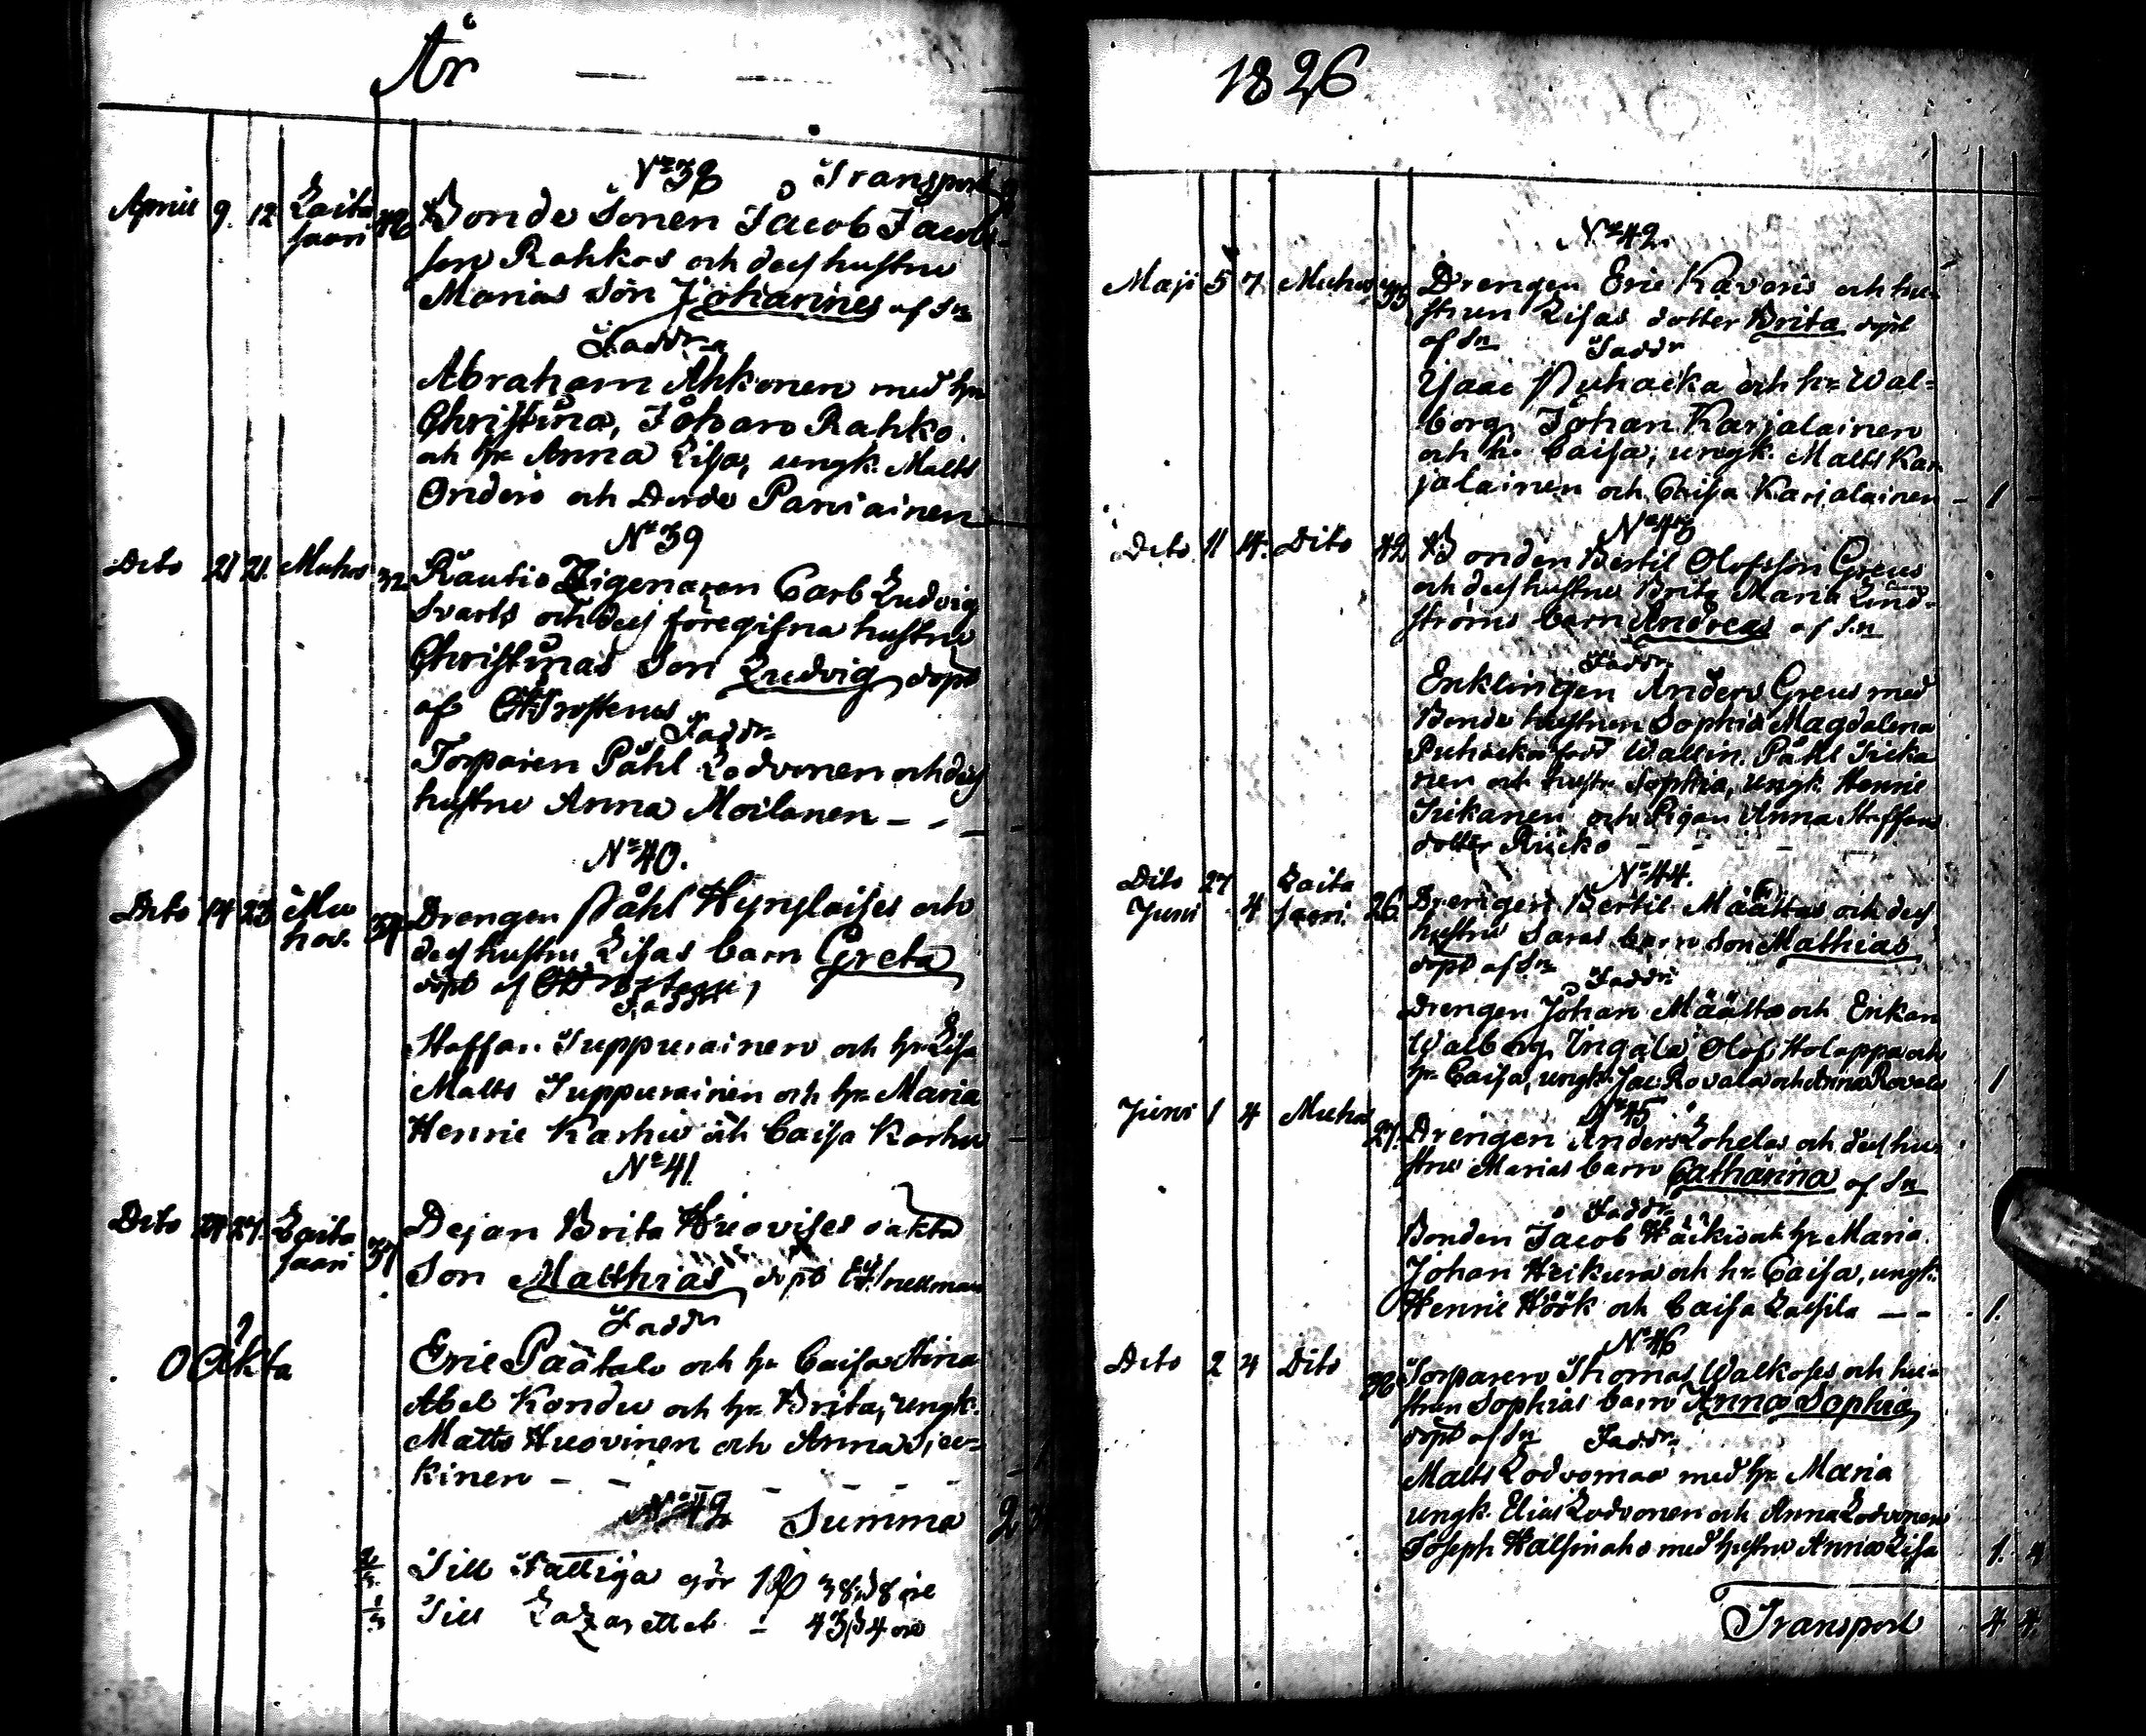 År
Nr 38 Transport
April 9. 12 Laita Bonde Sonen Jacob Jacobs-
saari son Rahkos och dess hustru
Marias son Johannes af Sn
Faddr
Abraham Ahkonen med hr
Christina, Johan Rahko
och hr Anna Lisa, ungk. Matts
och Parviainen
Nr 39
Dito 21 21. Muhos 32 Rautio Zigenaren Carl Ludvig
Svarts och dess föregifna hustru
Christinas Son Ludvig döpt
af
Faddr
Torparen Påhl Lodvonen och dess
hustru Anna Moilanen - - -
Nr 40.
Dito 14 23 Mu Drengen Påhl Hyryläises och
hos. dess hustru Lisas barn Greta
döpt af
Faddr
Staffan Tuppurainen och hr Lisa
Matts Tuppurainen och hr Maria
Henric Karhu och Caisa Karhu
Nr 41.
Dito 24 27. Laita 37 Dejan Brita Huovises oäkta
saari Son Matthias döpt
Faddr
Oäkta Eric Päätalo och hr Caisa
Abel Kondu och hr Brita, ungk.
Matts Huovinen och Anna
kinen - - - - - -
Nr 42 Summa 2
Till Fattiga gör
Till Lazarettet -
1826
Nr 42.
Maji 5 7 Muhos 35 Drengen Eric Kavoris och hu-
strun Lisas dotter Brita döpt
af Sn Faddr
Isaac Puhacka och hr Wal-
borg, Johan Karjalainen
och hr Caisa, ungk. Matts Kar
jalainen och Caisa Karjalainen - 1 -
Nr 43
Dito 11 14. Dito 42 Bonden Bertil Olofsson Greus
och dess hustru Brita Maria Lind-
ströms barn Andreas af Sn
Faddr
Enklingen Anders Greus med
Bonde hustrun Sophia Magdalena
Puhacka född Wallin. Påhl
nen och hustr Sophia, ungk. Henric
och Pigan Anna Staffans
dotter - - -
Nr 44.
Dito 27 Laita
Juni 4 saari. 26. Drengen Bertil Määttas och dess
hustru Saras barn Son Mathias
döpt af Sn Faddr
Drengen Johan Määtta och Enkan
Walborg Ingala Olof Holappa och
hr Caisa, ungk. Jac Rovala och Anna Rovala 1
Nr 45
Juni 1 4 Muhos 27. Drengen Anders Lohelas och dess hu-
stru Marias barn Catharina af Sn
Faddr
Bonden Jacob och hr Maria.
Johan Heikura och hr Caisa, ungk.
Henric Höök och Caisa - - 1.
Nr 46
Dito 2 4 Dito Torparen Thomas Walkoses och hu-
strun Sophias barn Anna Sophia
döpt af Sn Faddr
Matts Lodvomaa med hr Maria
ungk. Elias Lodvonen och Anna Lodvonen
Joseph med hustru Anna Lisa 1. 4
Transport 4 4.